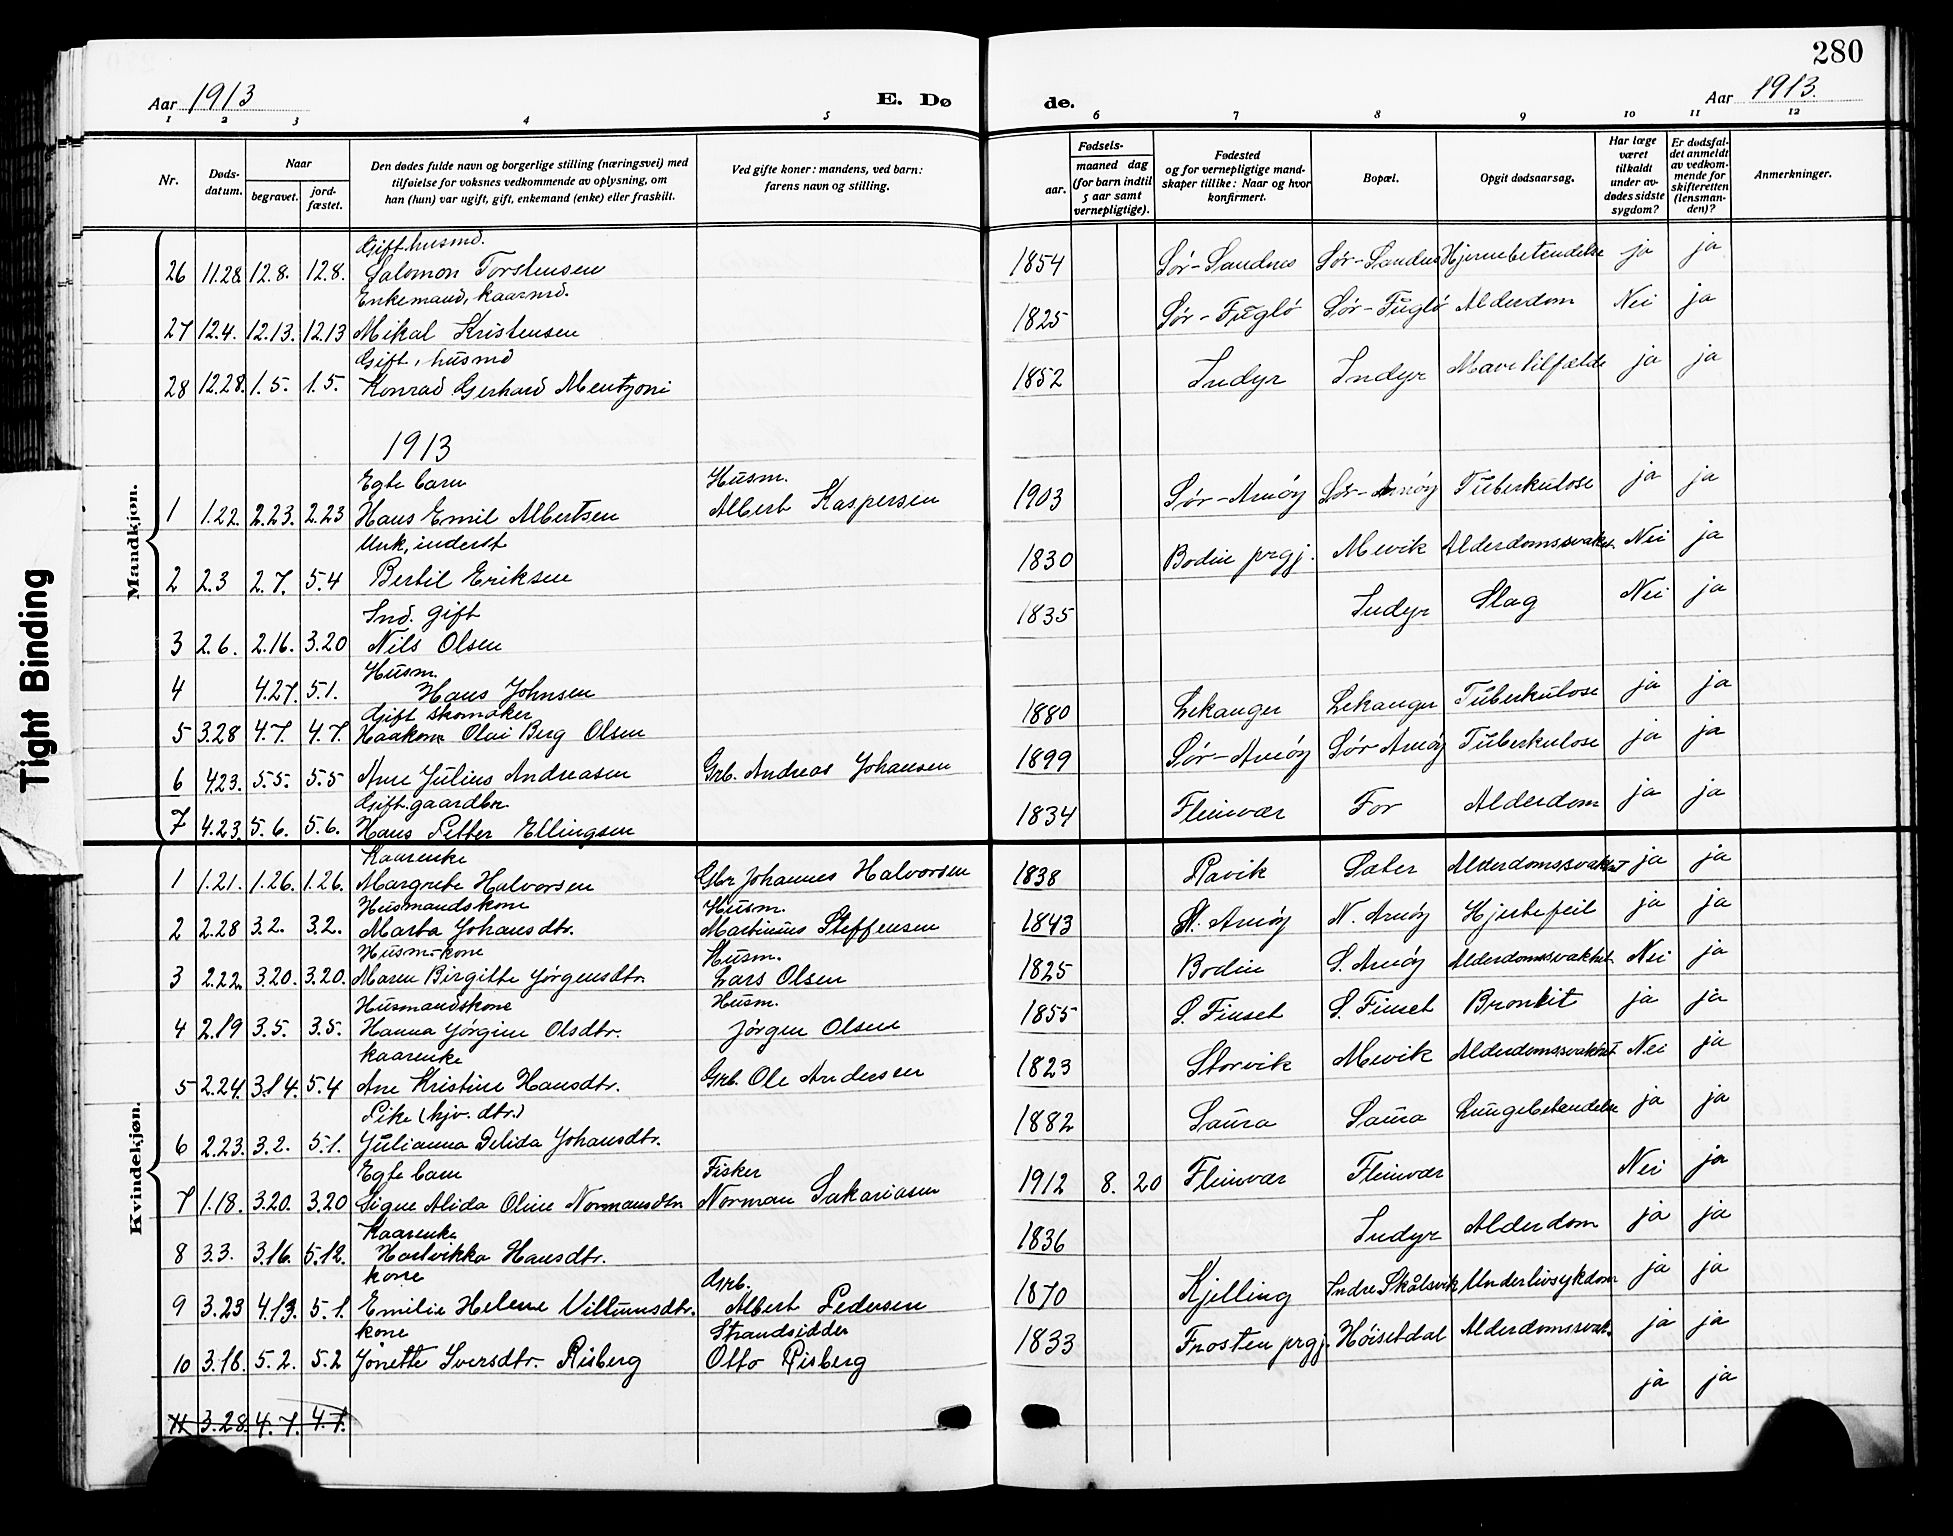 280
Aar 1913 E. Dø de. Aar 1913.
1 2 3 4 5 6 7 8 9 10 11 12
Nr. Døds-datum. Naar begravet. jord-fæstet. Den dødes fulde navn og borgerlige stilling (næringsvei) med tilføielse for voksnes vedkommende av oplysning, om han (hun) var ugift, gift, enkemand (enke) eller fraskilt. Ved gifte koner: mandens, ved barn: farens navn og stilling. Fødsels- aar. maaned dag (for barn indtil 5 aar samt vernepligtige). Fødested og for vernepligtige mand-skaper tillike: Naar og hvor konfirmert. Bopæl. Opgit dødsaarsag. Har læge været tilkaldt under av-dødes sidste sygdom? Er dødsfal-det anmeldt av vedkom-mende for skifteretten (lensman-den)? Anmerkninger.
Gift husmd.
26 11.28 12.8. 12.8. Salomon Torstensen 1854 Sør-Sandnes Sør-Sandnes Hjernebetendelse ja ja
Enkemand, kaarmd.
27 12.4. 12.13. 12.13 Mikal Kristensen 1825 Sør-Fuglø Sør-Fuglø Alderdom Nei ja
Gift, husmd
28 12.28. 1.5. 1.5. Konrad Gerhard Mentzoni 1852 Indyr Indyr Mavetilfælde ja ja
1913
Mandkjøn.
Egte barn Husm.
1 1.22. 2.23. 2.23 Hans Emil Albertsen Albert Kaspersen 1903 Sør-Arnøy Sør-Arnøy Tuberkulose ja ja
Unk, inderst
2 2.3 2.7. 5.4 Bertil Eriksen 1830 Bodin prgj. Mevik Alderdomssvakh. Nei ja
Ind. gift
3 2.6. 2.16. 3.20 Nils Olsen 1835 Indyr Slag Nei ja
Husm.
4 4.27. 5.1. Hans Johnsen
Gift skomaker
5 3.28 4.7. 4.7. Haakon Olai Berg Olsen 1880 Lekanger Lekanger Tuberkulose ja ja
6 4.23. 5.5. 5.5 Arne Julius Andreasen Grb. Andreas Johansen 1899 Sør-Arnøy Sør Arnøy Tuberkulose ja ja
Gift. gaardbr.
7 4.23. 5.6. 5.6. Hans Petter Ellingsen 1834 Fleinvær For Alderdom ja ja
Kvindekjøn.
Kaarenke
1 1.21. 1.26. 1.26. Margrete Halvorsen Gbr Johannes Halvorsen 1838 Ravik Sater Alderdomssvakhet ja ja
Husmandskone Husm.
2 2.28 3.2. 3.2. Marta Johansdtr. Martinius Steffensen 1843 N. Arnøy N. Arnøy Hjertefeil ja ja
Husm-kone Husm.
3 2.22. 3.20. 3.20. Maren Birgitte Jørgensdtr. Lars Olsen 1825 Bodin S. Arnøy Alderdomssvakhet Nei ja
Husmandskone Husm.
4 2.19 3.5. 3.5. Hanna Jørgine Olsdtr. Jørgen Olsen 1855 S. Finset S. Finset Bronkit ja ja
Kaarenke
5 2.24. 3.14. 5.4 Ane Kristine Hansdtr. Grb. Ole Andersen 1823 Storvik Mevik Alderdomssvakhet Nei ja
Pike (hjv. dtr.)
6 2.23. 3.2. 5.1. Julianna Delida Johansdtr. 1882 Saura Saura Lungebetendelse ja ja
Egte barn Fisker
7 1.18. 3.20. 3.20 Signe Alida Oline Normansdtr Norman Sakariasen 1912 8. 20 Fleinvær Fleinvær Nei ja
Kaarenke
8 3.3. 3.16. 5.12. Hartvikka Hansdtr. 1836 Indyr Alderdom ja ja
kone Grb.
9 3.23 4.13. 5.1. Emilie Helene Villumsdtr. Albert Pedersen 1870 Kjelling Indre Skålsvik Underlivsykdom ja ja
kone Strandsidder
10 3.18. 5.2. 5.2 Jonette Iversdtr. Risberg Otto Risberg 1833 Frosten prgj. Høisetdal Alderdomssvak. ja ja
11 3.28. 4.7. 4.7. ja ja
Tight Binding